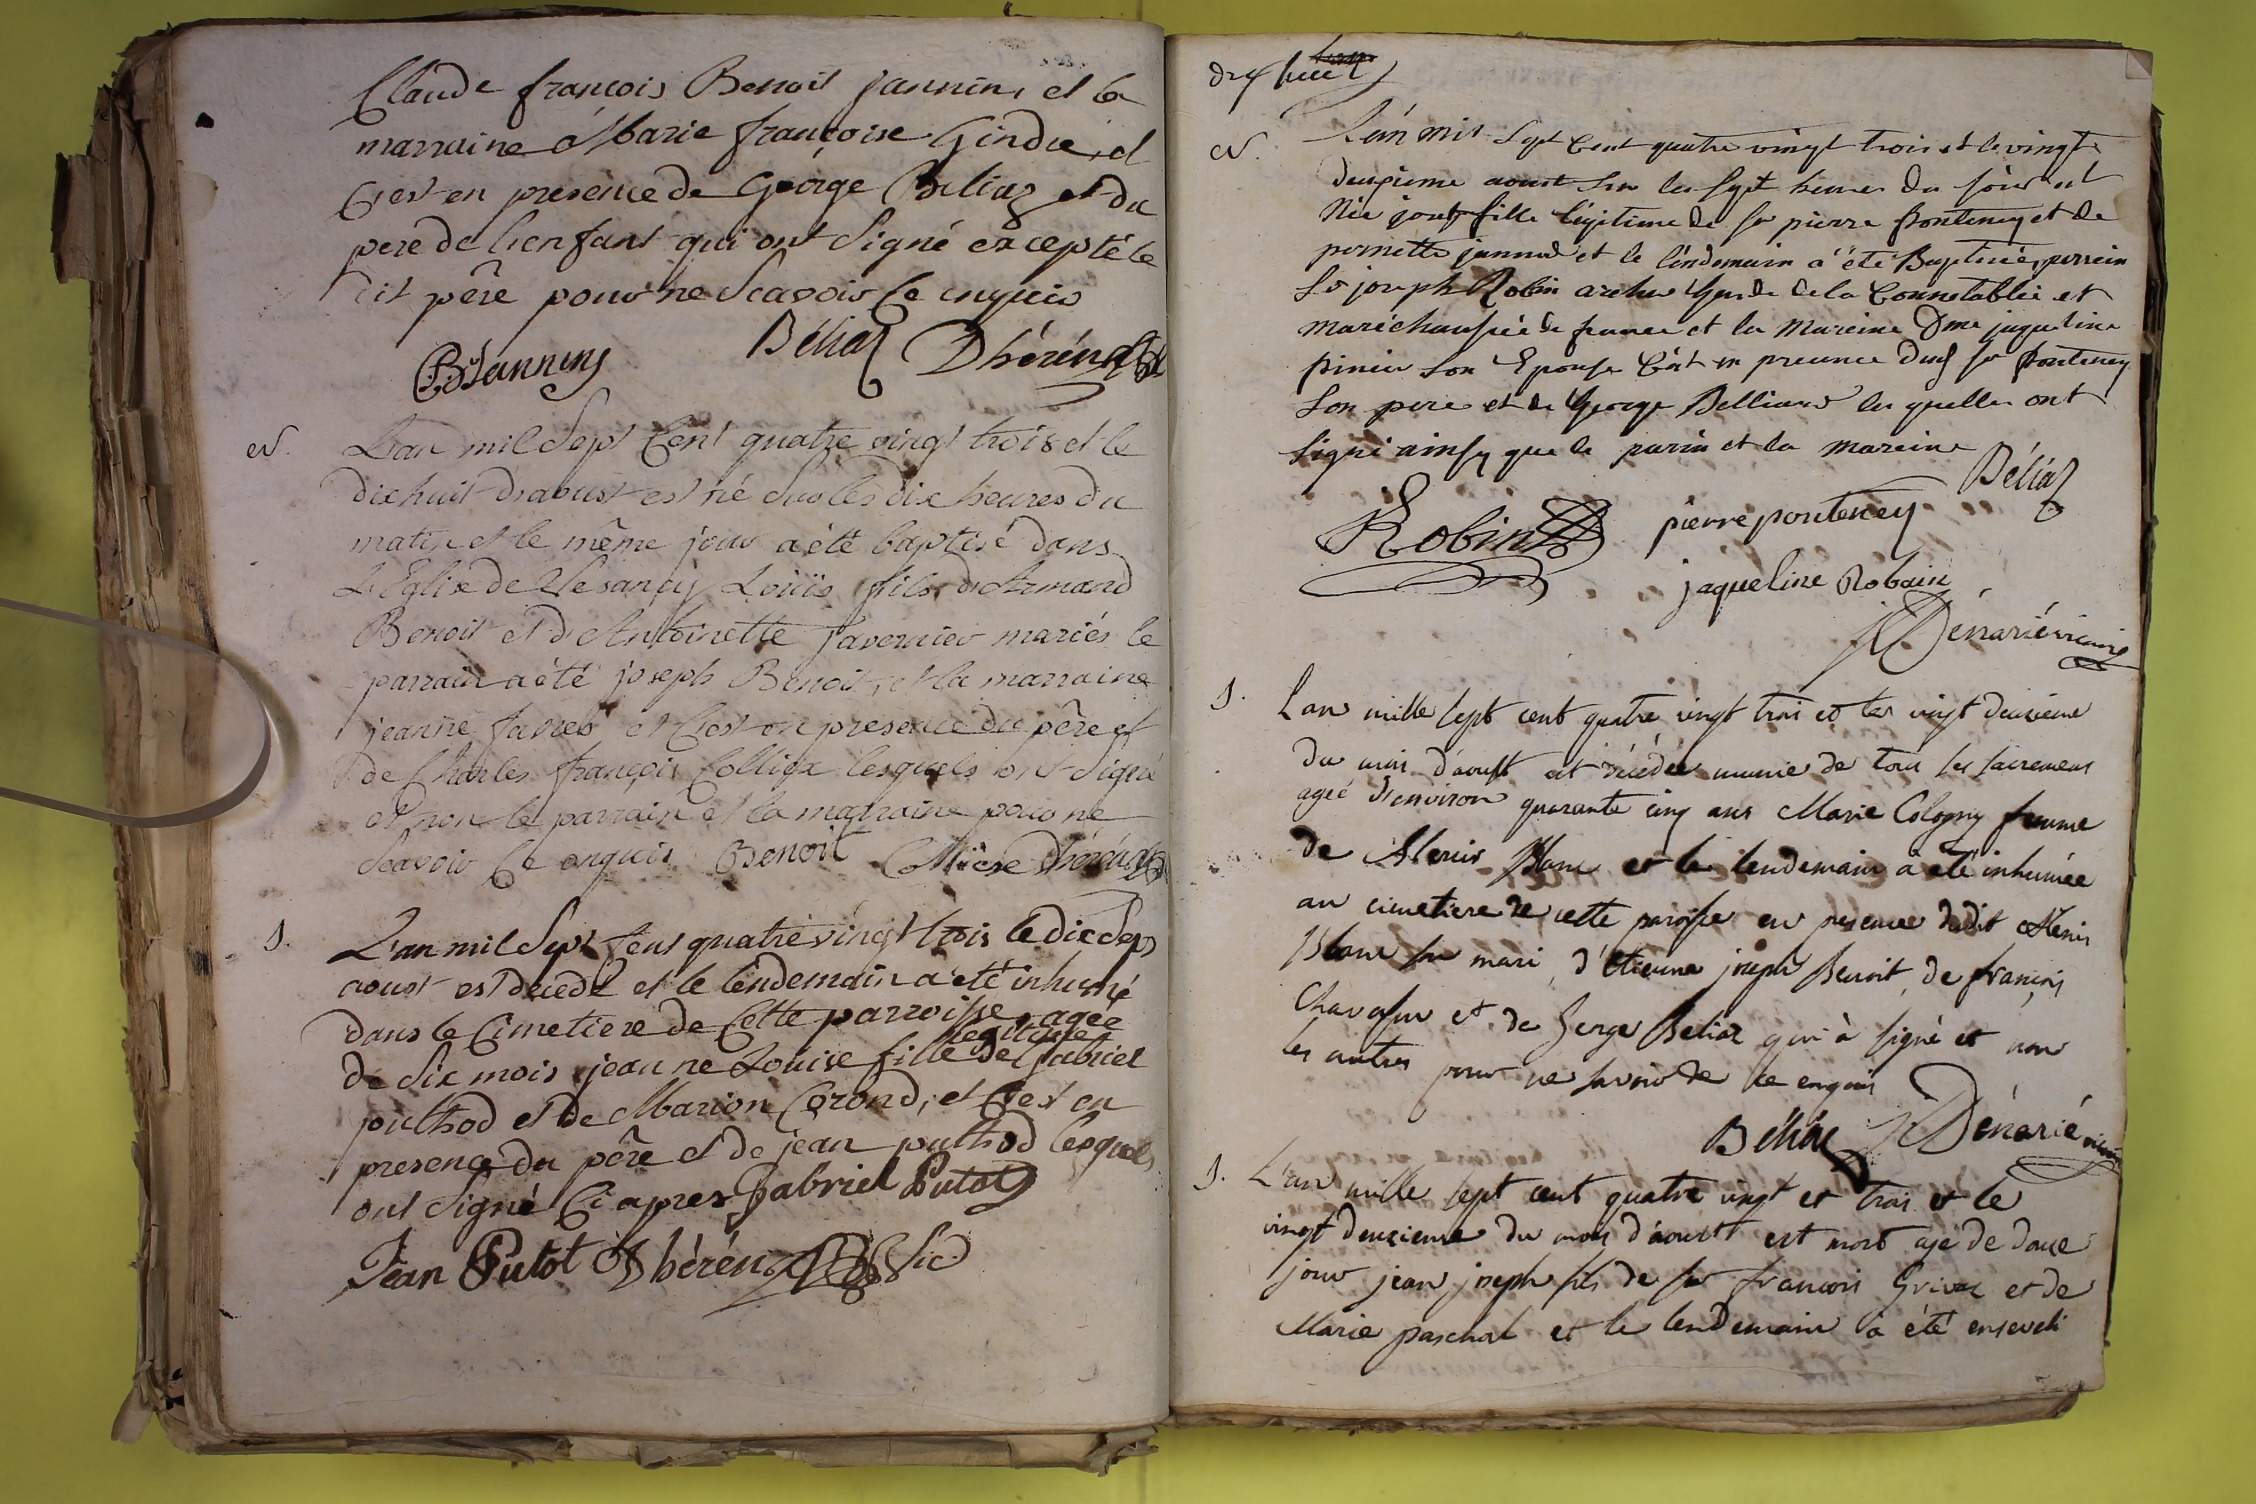 Claude françois Benoit jannin, et la
marraine Marie françoise Gindre, et
C'est en presence de George Beliaz et du
pere de l'enfant qui ont signé excepté le
dit père pour ne Scavoir Ce enquis
Jannins Béliaz Dhéréns
N. L'an mil Sept Cent quatre vingt trois et le
dixhuit d'aoust est né sur les dix heures du
matin et le même jour a été baptisé dans
L'Eglise de Vesancy Loüis fils d'Armand
Benoit et d'Antoinette Tavernier mariés le
parrain a été joseph Benoit, et la marraine
jeanne et C'est en presence du père et
de Charles françois lesquels ont Signé
et non le parrain et la marraine pour ne
Scavoir Ce enquis Benoit
S. L'an mil Sept Cent quatre vingt trois le dix Sept
aoust est decedé et le lendemain a été inhumé
dans le Cimetiere de Cette parroisse, agée
legitime
de Six mois jeanne Louise fille de Gabriel
puthod et de Marion Corond, et C'est en
presence du père et de jean puthod lesquels
ont Signé Ci apres Gabriel Putot
Jean Putot
N. L'an mil Sept Cent quatre vingt trois et le vingt
deuxieme aoust sur les Sept heures du soir est
Née fille legitime de sr pierre pontenay et de
pernette et le lendemain a été Baptisée, parrein
Sr joseph Robin archer Garde de la Connetablie et
maréchaussée de france et la Mareine Dme jaqueline
son Epouse C'est en presence dud sr pontenay
Son pere et de George Belliard les quelles ont
Signé ainsy que le parrin et la mareine
Béliaz
Robin pierre pontenay
jaqueline Robain
Dénarié vicaire
S. L'an mille sept cent quatre vingt trois et le vingt deuxieme
du mois d'aoust est décédée munie de tous les sacremens
ageé d'environ quarante cinq ans Marie Cologny femme
de Alexis Blanc et le lendemain a été inhumée
au cimetiere de cette paroisse en presence dudit Alexis
Blanc son mari, d'étienne joseph Benoit, de françois
Chavasse et de George Beliaz qui à signé et non
les autres pour ne savoir de ce enquis
Béliaz Dénarié vicaire
S. L'an mille sept cent quatre vingt et trois et le
vingt deuxieme du mois d'aoust est mort agé de douze
jour jean joseph fils de sr françois Grivaz et de
Marie paschal et le lendemain à été enseveli